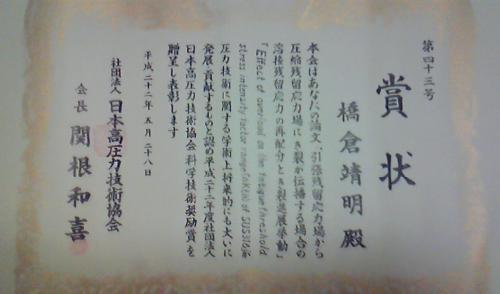 第四十三号
賞状
橋倉靖明 殿
本会はあなたの論文、引張残留応力場から
圧縮残留応力場にき裂が伝播する場合の
溶接残留応力の再配分とき裂進展挙動」
「Effect of overload on the fatigue threshold
stress intensity factor range (ΔKth) of SUS316が
圧力技術に関する学術上将来的にも大いに
発展・貢献するものと認め平成二十二年度社団法人
日本高圧力技術協会科学技術奨励賞を
贈呈し表彰します
平成二十二年 五月 二十八日
社団法人 日本高圧力技術協会
会長 関根和喜